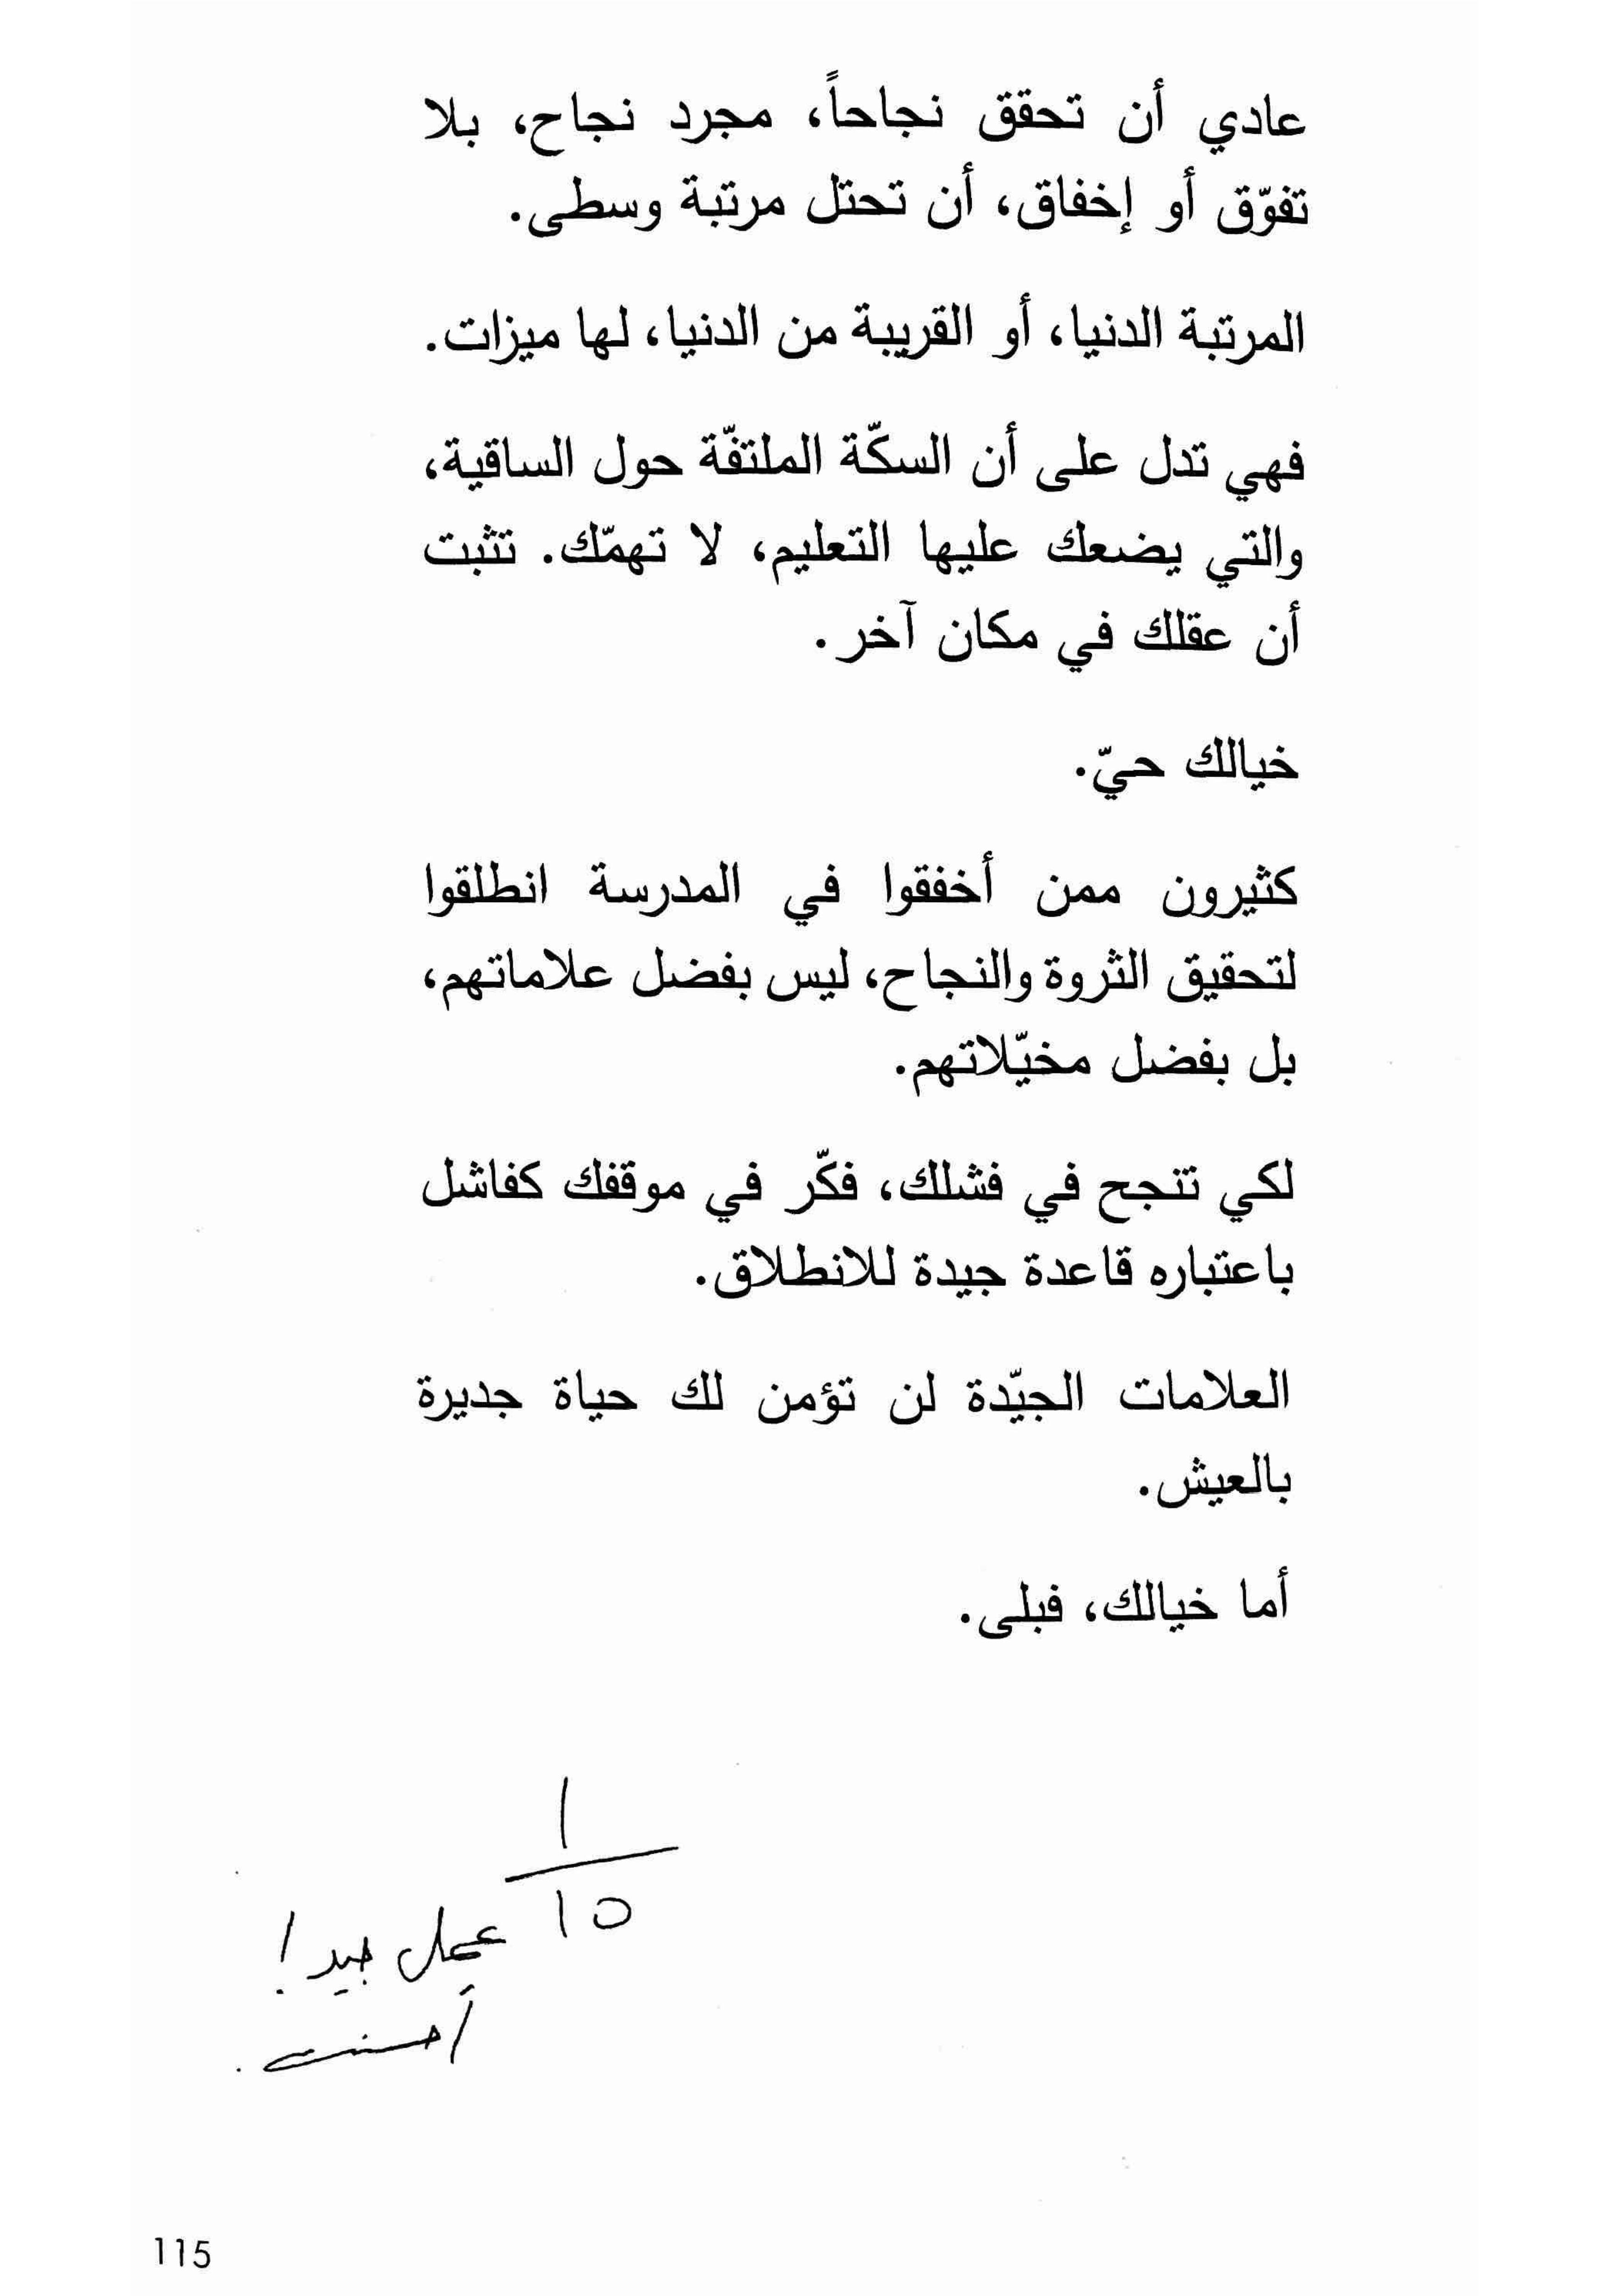 عادي أن تحقق نجاحاً، مجرد نجاح، بلا
تفوّق أو إخفاق، أن تحتل مرتبة وسطى.
المرتبة الدنيا، أو القريبة من الدنيا، لها ميزات.
فهي تدل على أن السكّة الملتفّة حول الساقية،
والتي يضعك عليها التعليم، لا تهمّك. تثبت
أن عقلك في مكان آخر.
خيالك حيّ.
كثيرون ممن أخفقوا في المدرسة انطلقوا
لتحقيق الثروة والنجاح، ليس بفضل علاماتهم،
بل بفضل مخيّلاتهم.
لكي تنجح في فشلك، فكّر في موقفك كفاشل
باعتباره قاعدة جيدة للانطلاق.
العلامات الجيّدة لن تؤمن لك حياة جديرة
بالعيش.
أما خيالك، فبلى.
1
10
عمل جيد!
أحسنت.
115